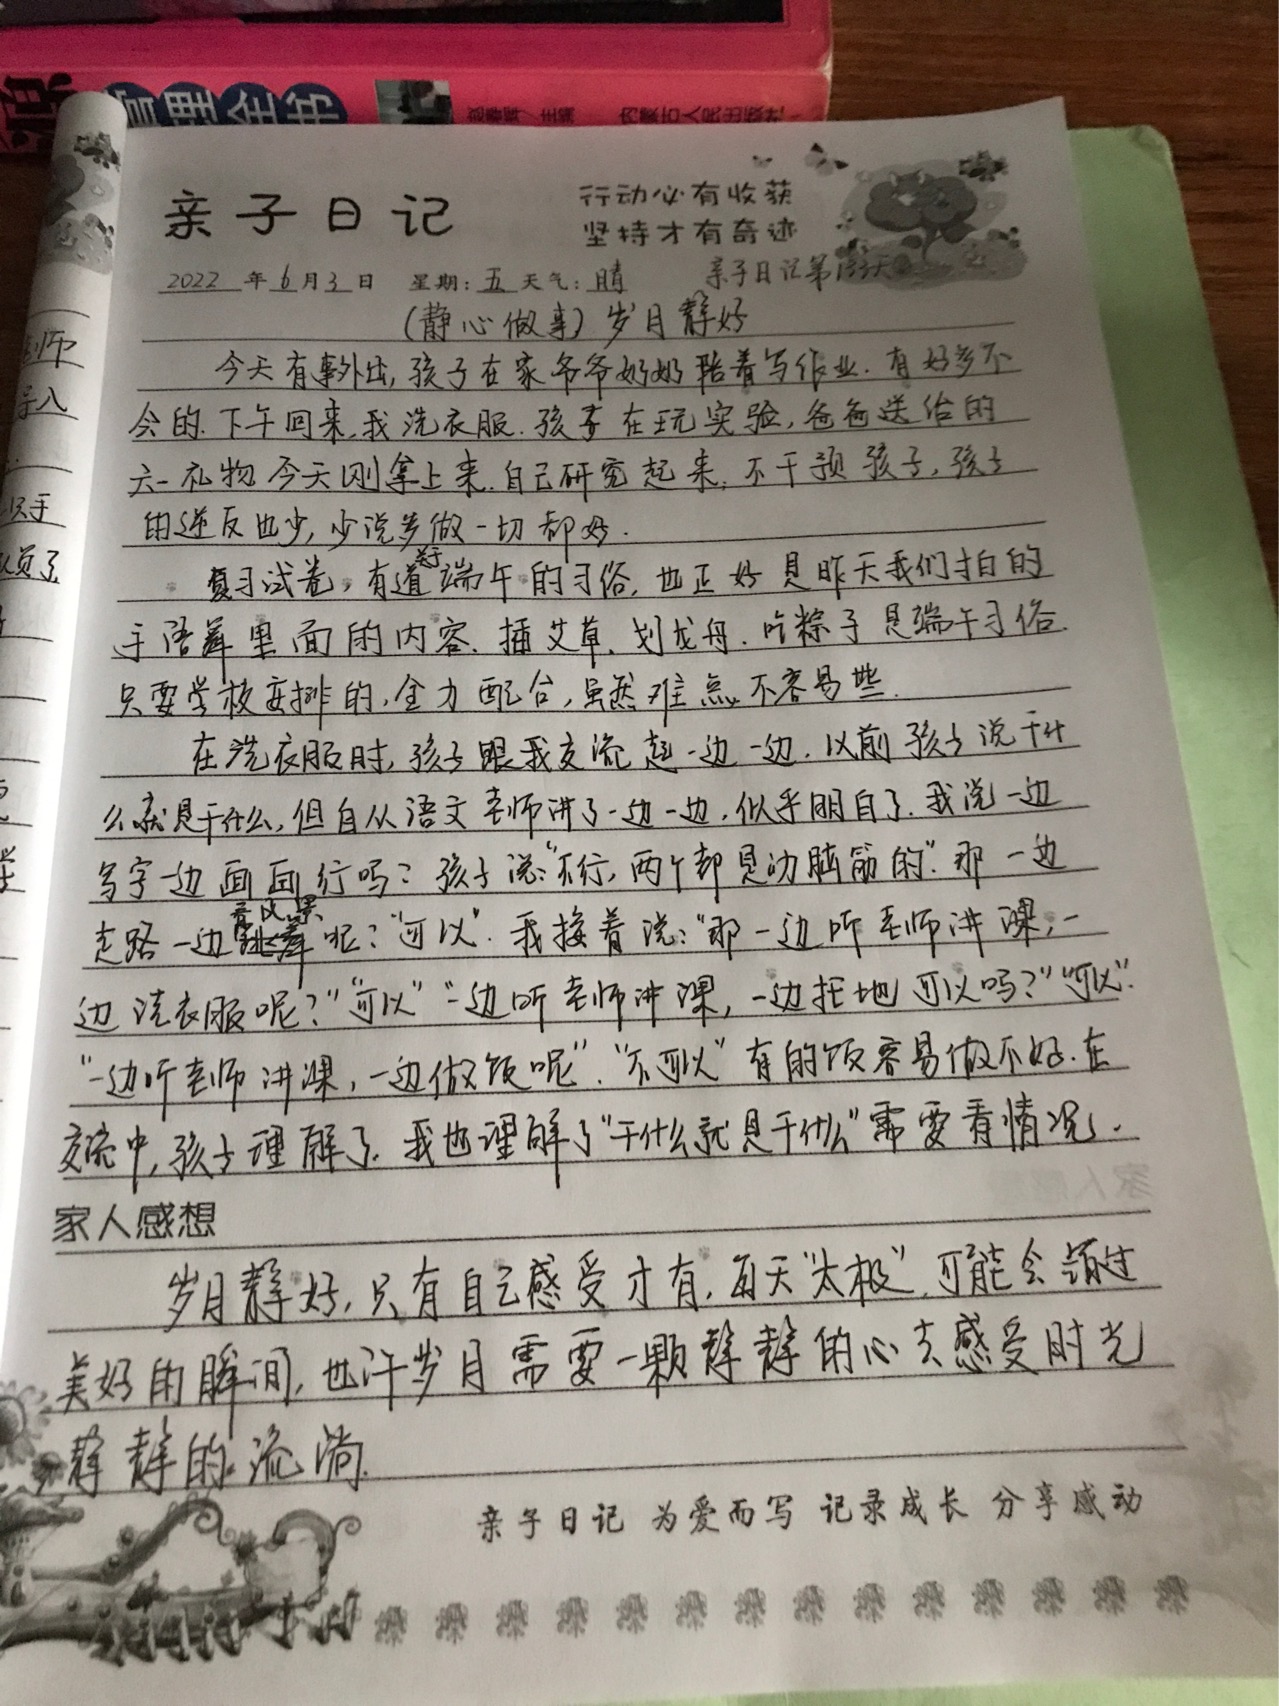 管理全书
赵春辉/主编 内蒙古人民出版社
亲子日记
行动必有收获
坚持才有奇迹
2022年6月3日 星期:五 天气:晴 亲子日记第133天
(静心做事)岁月静好
今天有事外出,孩子在家爷爷奶奶陪着写作业.有好多不
会的.下午回来,我洗衣服.孩子在玩实验,爸爸送给的
六一礼物今天刚拿上来.自己研究起来,不干预孩子,孩子
的逆反也少,少说多做一切都好.
复习试卷,有道关于端午的习俗,也正好是昨天我们拍的
手语舞里面的内容.插艾草、划龙舟.吃粽子是端午习俗.
只要学校安排的,全力配合,虽然难点不容易些.
在洗衣服时,孩子跟我交流起一边一边.以前孩子说干什
么就是干什么,但自从语文老师讲了一边一边.似乎明白了.我说一边
写字一边画画行吗?孩子说:"不行,两个都是动脑筋的".那一边
走路一边看风景呢?"可以".我接着说:"那一边听老师讲课,一
边洗衣服呢?""可以""一边听老师讲课,一边拖地可以吗?""可以".
"一边听老师讲课,一边做饭呢"."不可以"有的饭容易做不好.在
交流中,孩子理解了.我也理解了"干什么就是干什么"需要看情况.
家人感想
岁月静好,只有自己感受才有,每天"太极",可能会错过
美好的瞬间,也许岁月需要一颗静静的心去感受时光
静静的流淌.
亲子日记 为爱而写 记录成长 分享感动